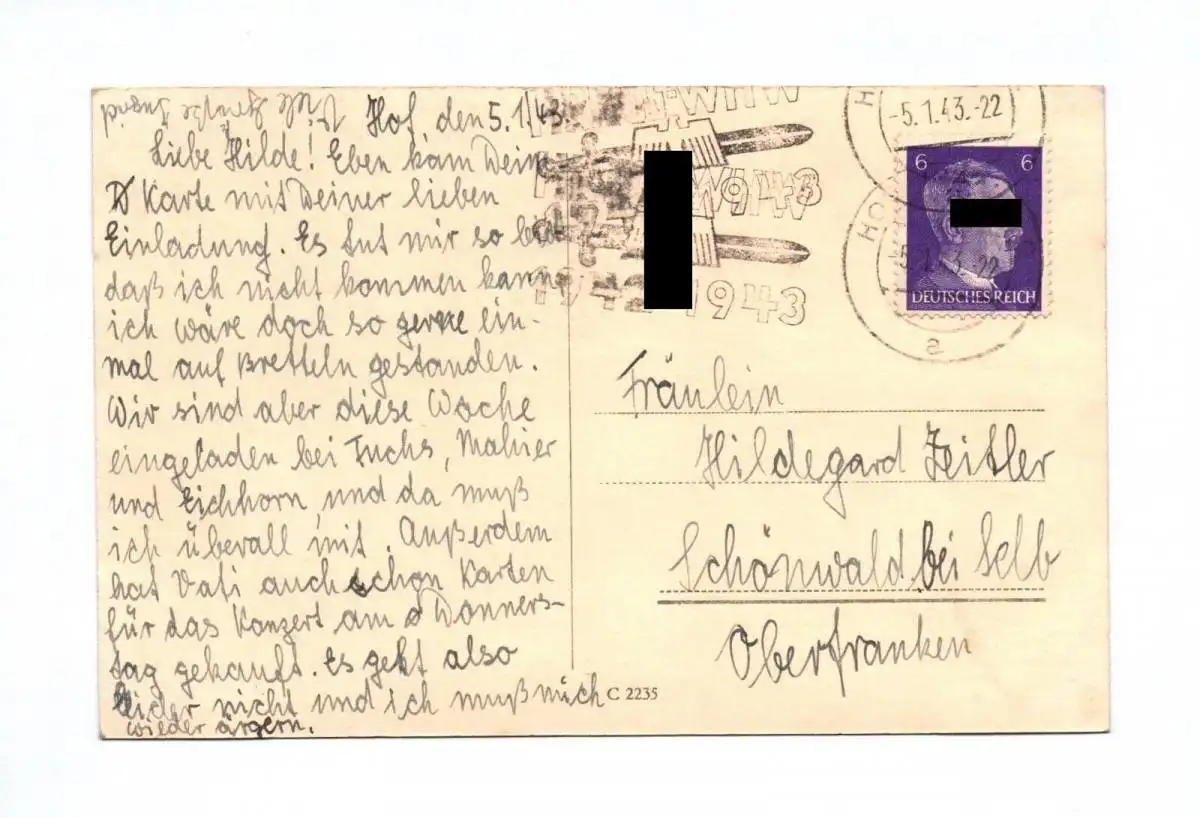 Hof, den 5.1.43.
Liebe Hilde! Eben kam Deine
Karte mit Deiner lieben
Einladung. Es tut mir so leid
daß ich nicht kommen kann
ich wäre doch so gerne ein-
mal auf Bretteln gestanden.
Wir sind aber diese Woche
eingeladen bei Fuchs, Mahier
und Eichhorn, und da muß
ich überall mit. Außerdem
hat Vati auch schon Karten
für das Konzert am Donners-
tag gekauft. Es geht also
leider nicht und ich muß mich
wieder ärgern.
C 2235
WHW
1943
1942 1943
-5.1.43.-22
HO
5.1.43.-22
a
6 6
DEUTSCHES REICH
Fräulein
Hildegard Zeitler
Schönwald bei Selb
Oberfranken